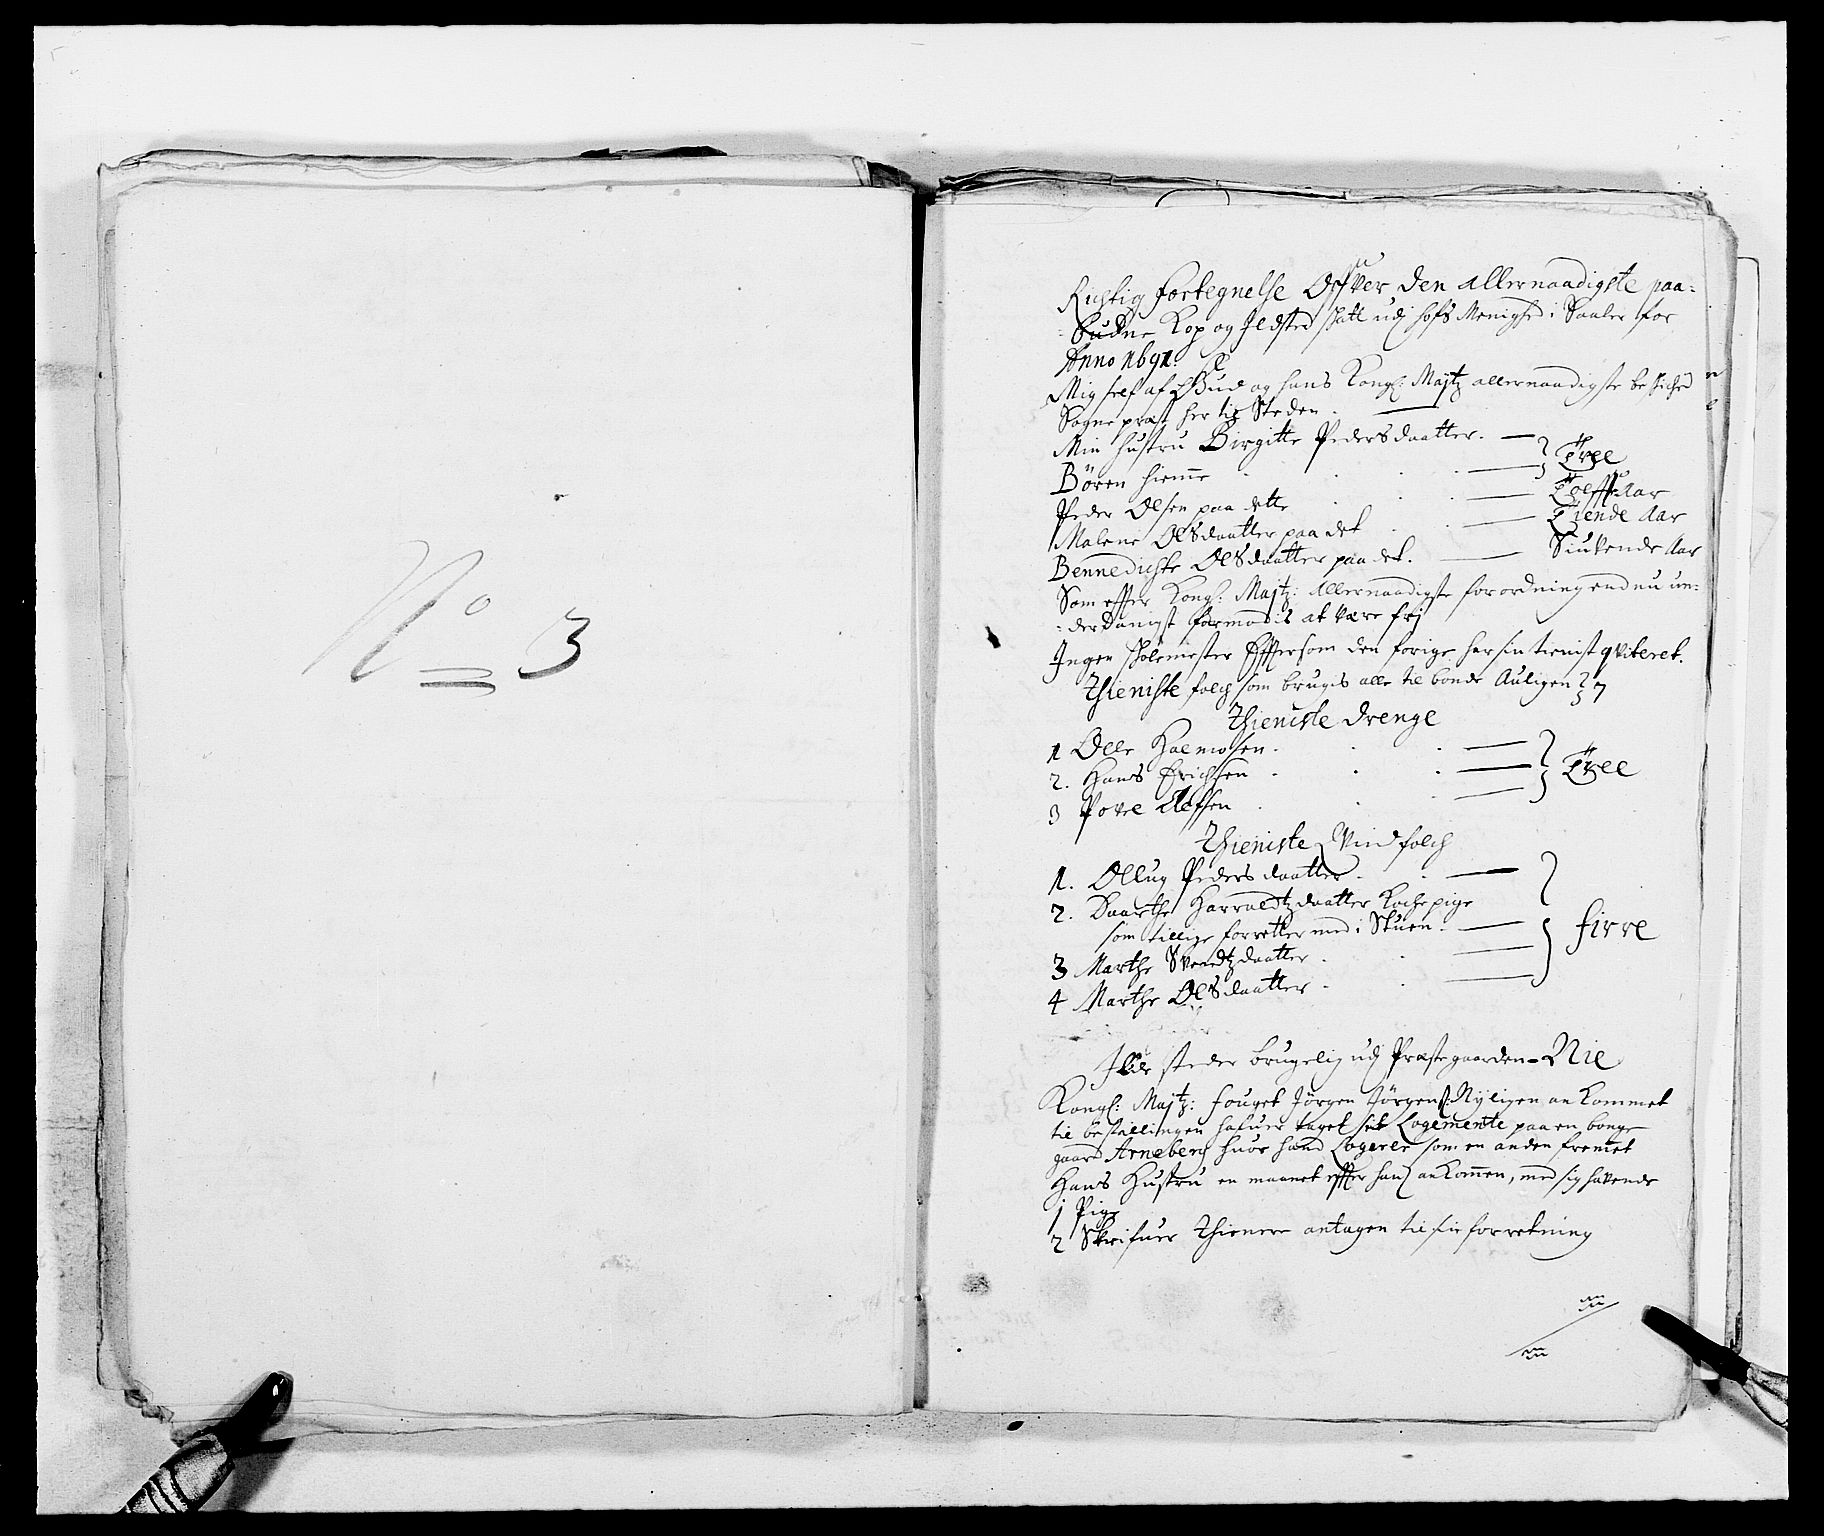 No 3
Richtig fortegnelse Offver den allernaadigste paa=
=budne Kop og Ildsted skatt udj Hofs Menighed i Soeløer for
Anno 1691.
Mig self af Gud og hans Kongl: Majtz allernaadigste beskiched
Sogne præst her til Steden.
Min hustru Birgitte Pedersdaatter.
Børen hiemme
Tree
Peder Olsen paa dette Tolffte Aar
Malene Olsdaatter paa det Tiende Aar
Bennedichte Olsdaatter paa det. Siuvende Aar
Som effter Kongl: Majtz: Allernaadigste forordning endnu un=
=derdanigst formodis at være frj
Ingen skolemester Effttersom den forige har sin tienist qviteret.
Thieniste folch som brugis alle til bonde Auligen 7
Thieniste drenge
1 Olle Halmosen.
2. Hans Erichsen Tree
3 Povel Olefsen
Thieniste Qvindfolch
1. Ollug Pedersdaatter.
2. Daarthe Harraldtzdaatter Kochepige
som tillige forretter med i Stuen. firre
3 Marthe Svendtzdaatter
4 Marthe Olsdaatter
Ilde steder brugelig udj Præstegaarden - Nie
Kongl: Majtz: fouget Jørgen Jørgens: Nyligen an Kommet
til bestillingen hafuer taget sit Logemente paa en bonde
gaard Arneberg huor hand Logerer som en anden fremet
Hans Hustru en maanet effter hans ankommen, med sig havende
1 Pige
2 Skrifuer Thienere antagen til sin forretning